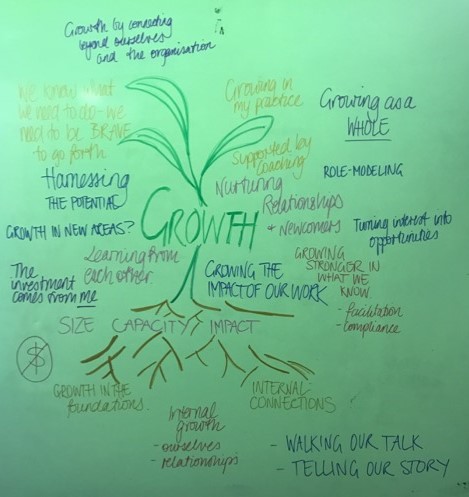 Growth by connecting
beyond ourselves
and the organisation
We know what
we need to do - we
need to be BRAVE
to go forth
Growing in
my practice
Growing as a
WHOLE
Supported by
coaching
ROLE-MODELING
Harnessing
THE POTENTIAL
Nurturing
Relationships
+ Newcomers
GROWTH
GROWTH IN NEW AREAS?
Turning interest into
opportunities
Learning from
each other
The
investment
comes from me
GROWING THE
IMPACT OF OUR WORK
GROWING
STRONGER IN
WHAT WE
KNOW
- facilitation
- compliance
SIZE CAPACITY IMPACT
$
GROWTH IN THE
foundations
INTERNAL
CONNECTIONS
Internal
growth
- ourselves
- relationships
- WALKING OUR TALK
- TELLING OUR STORY